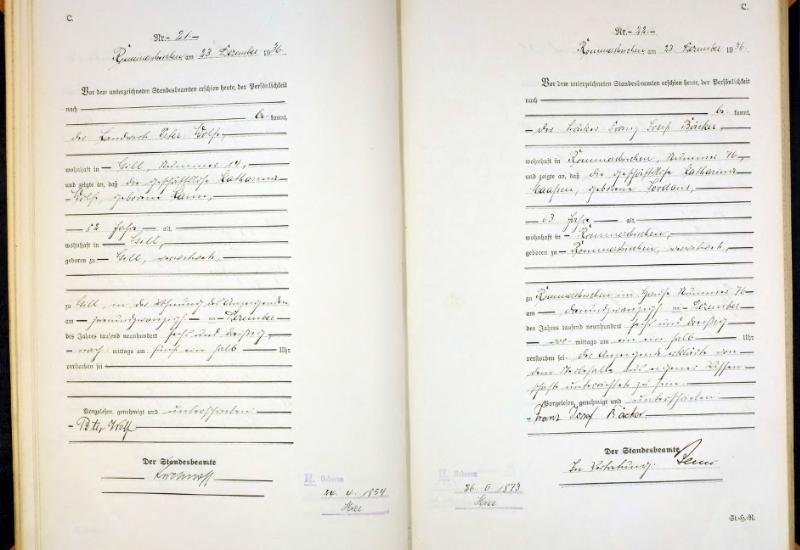 C.
Nr. 21.
Rommerskirchen am 23. Dezember 1936
Vor dem unterzeichneten Standesbeamten erschien heute, der Persönlichkeit
nach
be kannt,
der Landwirt Peter Wolf,
wohnhaft in Gill, Nummer 14,
und zeigte an, daß die geschäftslose Katharina
Wolf, geborene
52 Jahre alt,
wohnhaft in Gill,
geboren zu Gill, verwitwet,
zu Gill, in der Wohnung des Anzeigenden
am zweiundzwanzig Dezember
des Jahres tausend neunhundert sechs und dreißig
nach mittags um fünf ein halb Uhr
verstorben sei
Vorgelesen, genehmigt und unterschrieben
Peter Wolf
Der Standesbeamte
H. Geboren
24. 4. 1884
Hier
C.
Nr. 22.
Rommerskirchen am 23. Dezember 1936.
Vor dem unterzeichneten Standesbeamten erschien heute, der Persönlichkeit
nach
be kannt,
der Bäcker Franz Josef Bäcker,
wohnhaft in Rommerskirchen, Nummer 76,
und zeigte an, daß die geschäftslose Katharina
Maassen, geborene Jordans,
63 Jahre alt,
wohnhaft in Rommerskirchen,
geboren zu Rommerskirchen, verwitwet,
zu Rommerskirchen im Hause Nummer 76
am dreiundzwanzig Dezember
des Jahres tausend neunhundert sechs und dreißig
vor mittags um ein ein halb Uhr
verstorben sei. Der Anzeigende erklärte von
dem Sterbefalle aus eigener Wissen-
schaft unterrichtet zu sein
Vorgelesen, genehmigt und unterschrieben
Franz Josef Bäcker
Der Standesbeamte
In Vertretung:
H. Geboren
26. 6. 1873
Hier
St.-H.-R.